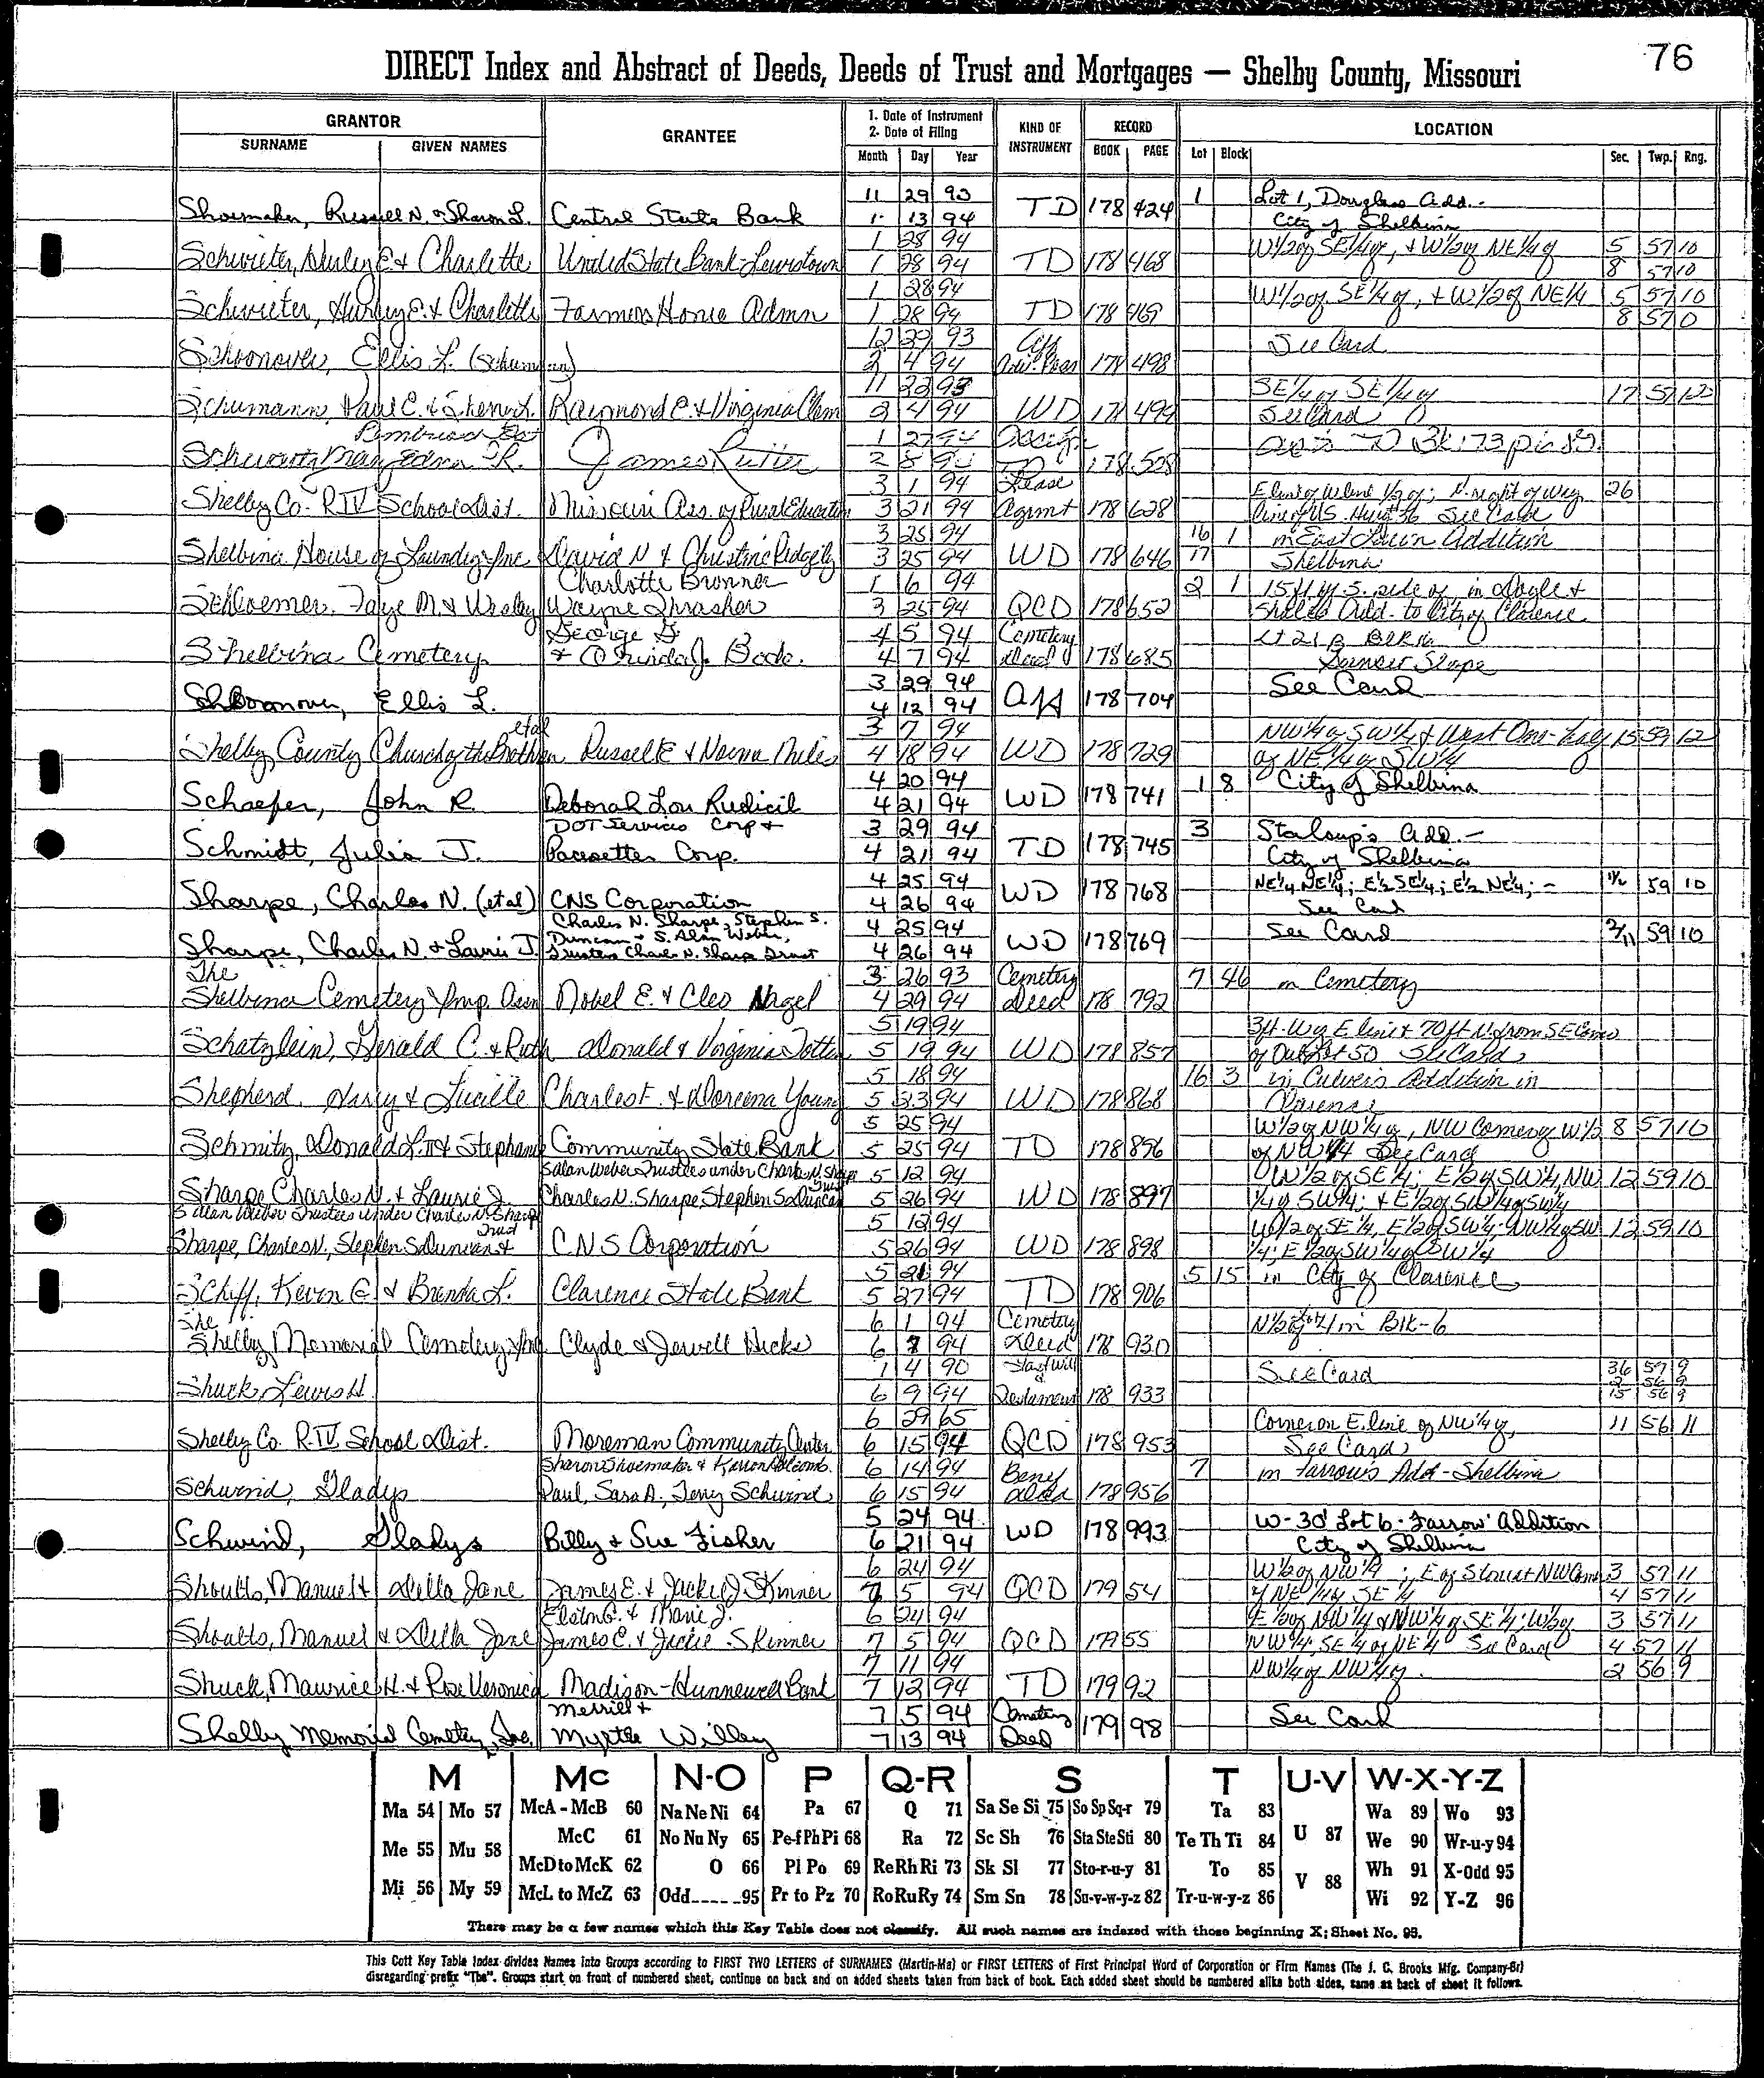 76
DIRECT Index and Abstract of Deeds, Deeds of Trust and Mortgages — Shelby County, Missouri
GRANTOR
SURNAME GIVEN NAMES
GRANTEE
1. Date of Instrument
2. Date of Filing
Month Day Year
KIND OF INSTRUMENT
RECORD
BOOK PAGE
LOCATION
Lot Block Sec. Twp. Rng.
11 29 93 1 Lot 1, Douglass Add.-
Shoemaker, Russell N. & Sharon L. Central State Bank 1 13 94 TD 178 424 City of Shelbina
1 28 94 W1/2 of SE1/4 of, & W1/2 of NE1/4 of 5 57 10
Schwieter, Hurley E & Charlotte United State Bank-Lewistown 1 28 94 TD 178 468 8 57 10
1 28 94 W1/2 of SE1/4 of, & W1/2 of NE1/4 5 57 10
Schwieter, Hurley E. & Charlotte Farmers Home Admn 1 28 94 TD 178 469 8 57 0
12 29 93 Aff See Card
Schoonover, Ellis L. 2 4 94 178 498
11 22 93 SE1/4 of SE1/4 of 17 57 12
Schumann, Paul C. & Raymond C. & Virginia Clem 2 4 94 WD 178 499 See Card
1 27 94 Assign
Schwartz Mary Edna R. James Rutter 2 8 94 TD 178 508
3 1 94 Lease E line of W line 1/2 of; N. right of way 26
Shelby Co. R IV School Dist. Missouri Ass. of Rural Education 3 21 94 Agrmt 178 628 line of US. Hwy 36 See Card
3 25 94 16 1 in East Lawn Addition
Shelbina House of Laundry Inc David N & Christine Ridgely 3 25 94 WD 178 646 17 Shelbina
Charlotte Bronner 1 6 94 2 1 15 ft of S. side of in Doyle &
Schloemer, Faye M. & Wesley Wayne Thrasher 3 25 94 QCD 178 652 Shields Add. to City of Clarence
George F 4 5 94 Cemetery Lt 21 B Blk 16
Shelbina Cemetery & Orinda J. Bode. 4 7 94 Deed 178 685 Sunset Slope
3 29 94 See Card
Shoonover, Ellis L. 4 12 94 Aff 178 704
etal 3 7 94 NW1/4 of SW1/4 & West One-half 15 59 12
Shelby County Church of the Brethren Russell E & Norma Miles 4 18 94 WD 178 729 of NE1/4 of SW1/4
4 20 94 1 8 City of Shelbina
Schaefer, John R. Deborah Lou Rudicil 4 21 94 WD 178 741
DOT Services Corp & 3 29 94 3 Staloup's Add.-
Schmidt, Julia J. Pacesetter Corp. 4 21 94 TD 178 745 City of Shelbina
4 25 94 NE1/4 NE1/4; E1/2 SE1/4; E1/2 NE1/4; - 1/2 59 10
Sharpe, Charles N. (etal) CNS Corporation 4 26 94 WD 178 768 See Card
Charles N. Sharpe, Stephen S. 4 25 94 See Card 2/11 59 10
Duncan & S. Alan Weber,
Sharpe, Charles N. & Laurie J. Trustees Charles N. Sharpe Trust 4 26 94 WD 178 769
The 3 26 93 Cemetery 7 46 in Cemetery
Shelbina Cemetery Imp. Assn Nobel E. & Cleo Nagel 4 29 94 Deed 178 792
5 19 94 3ft. W of E line & 70ft N. from SE Corner
Schatzlein, Gerald C. & Ruth Donald & Virginia Totten 5 19 94 WD 178 857 of Outlot 50 See Card
5 18 94 16 3 in Culver's Addition in
Shepherd, Harry & Lucille Charles F. & Doreena Young 5 23 94 WD 178 868 Clarence
5 25 94 W1/2 of NW1/4 of, NW Corner of W1/2 8 57 10
Schmitz, Donald L. III & Stephanie Community State Bank 5 25 94 TD 178 896 of NW1/4 See Card
S Alan Weber Trustees under Charles N. Sharpe Trust 5 12 94 W1/2 of SE1/4; E1/2 of SW1/4, NW 12 59 10
Sharpe Charles N. & Laurie J. Charles N. Sharpe Stephen S. Duncan 5 26 94 WD 178 897 1/4 of SW1/4; & E1/2 of SW1/4 of SW1/4
S Alan Weber Trustees under Charles N. Sharpe Trust 5 12 94 W1/2 of SE1/4, E1/2 of SW1/4; NW1/4 of SW 12 59 10
Sharpe, Charles N., Stephen S Duncan & C.N.S Corporation 5 26 94 WD 178 898 1/4; E1/2 of SW1/4 of SW1/4
5 21 94 5 15 in City of Clarence
Schiff, Kevin G & Brenda L. Clarence State Bank 5 27 94 TD 178 906
The 6 1 94 Cemetery N1/2 of in Blk-6
Shelby Memorial Cemetery Inc Clyde & Jewell Hicks 6 7 94 Deed 178 930
1 4 90 Last Will & See Card 36 57 9
2 56 9
Shuck, Lewis H. 6 9 94 Testament 178 933 15 56 9
6 29 65 Corner on E. line of NW1/4 of, 11 56 11
Shelby Co. R.IV School Dist. Moreman Community Center 6 15 94 QCD 178 953 See Card
Sharon Shoemaker & Karron Holcomb. 6 14 94 Benf 7 in Farrow's Add-Shelbina
Schwind, Gladys Paul, Sara A., Terry Schwind 6 15 94 Deed 178 956
5 24 94 W-30' Lot 6-Farrow Addition
Schwind, Gladys Billy & Sue Fisher 6 21 94 WD 178 993 City of Shelbina
6 24 94 W1/2 of NW1/4; E of NW Corner 3 57 11
Shoults, Manuel & Della Jane James E. & Jackie J Skinner 7 5 94 QCD 179 54 of NE1/4 of SE1/4 4 57 11
Elston C. & Marie J. 6 24 94 E1/2 of NW1/4 & NW1/4 of SE1/4; W1/2 of 3 57 11
Shoults, Manuel & Della Jane James E. & Jackie Skinner 7 5 94 QCD 179 55 NW1/4; SE1/4 of NE1/4 See Card 4 57 11
7 11 94 NW1/4 of NW1/4 of. 2 56 9
Shuck, Maurice H. & Rose Veronica Madison-Hunnewell Bank 7 12 94 TD 179 92
Merrill & 7 5 94 Cemetery See Card
Shelby Memorial Cemetery, Inc. Myrtle Willey 7 13 94 Deed 179 98
M Mc N-O P Q-R S T U-V W-X-Y-Z
Ma 54 Mo 57 McA - McB 60 Na Ne Ni 64 Pa 67 Q 71 Sa Se Si 75 So Sp Sq-r 79 Ta 83 U 87 Wa 89 Wo 93
Me 55 Mu 58 McC 61 No Nu Ny 65 Pe-f Ph Pi 68 Ra 72 Sc Sh 76 Sta Ste Sti 80 Te Th Ti 84 We 90 Wr-u-y 94
McD to McK 62 O 66 Pl Po 69 Re Rh Ri 73 Sk Sl 77 Sto-r-u-y 81 To 85 V 88 Wh 91 X-Odd 95
Mi 56 My 59 McL to McZ 63 Odd_____95 Pr to Pz 70 Ro Ru Ry 74 Sm Sn 78 Su-v-w-y-z 82 Tr-u-w-y-z 86 Wi 92 Y-Z 96
There may be a few names which this Key Table does not classify. All such names are indexed with those beginning X; Sheet No. 95.
This Cott Key Table Index divides Names into Groups according to FIRST TWO LETTERS of SURNAMES (Martin-Ma) or FIRST LETTERS of First Principal Word of Corporation or Firm Names (The J. C. Brooks Mfg. Company-Br)
disregarding prefix "The". Groups start on front of numbered sheet, continue on back and on added sheets taken from back of book. Each added sheet should be numbered alike both sides, same as back of sheet it follows.